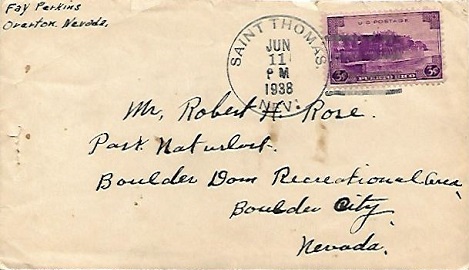 Fay Perkins
Overton Nevada.
SAINT THOMAS,
JUN
11
PM
1938
NEV.
U.S. POSTAGE
3¢ PUERTO RICO 3¢
Mr. Robert H. Rose.
Park Naturlost.
Boulder Dam Recreational Area,
Boulder City,
Nevada.